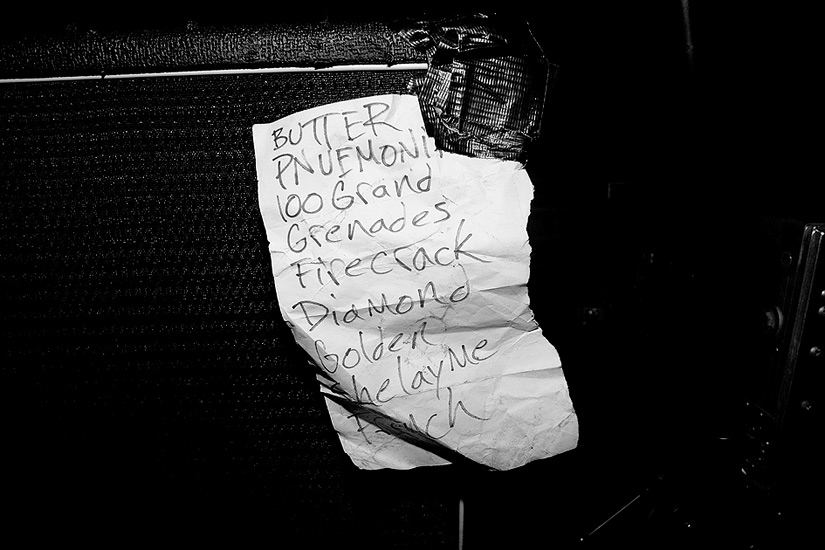 BUTTER
PNUEMONI
100 Grand
Grenades
Firecrack
Diamond
Golden
ShelayMe